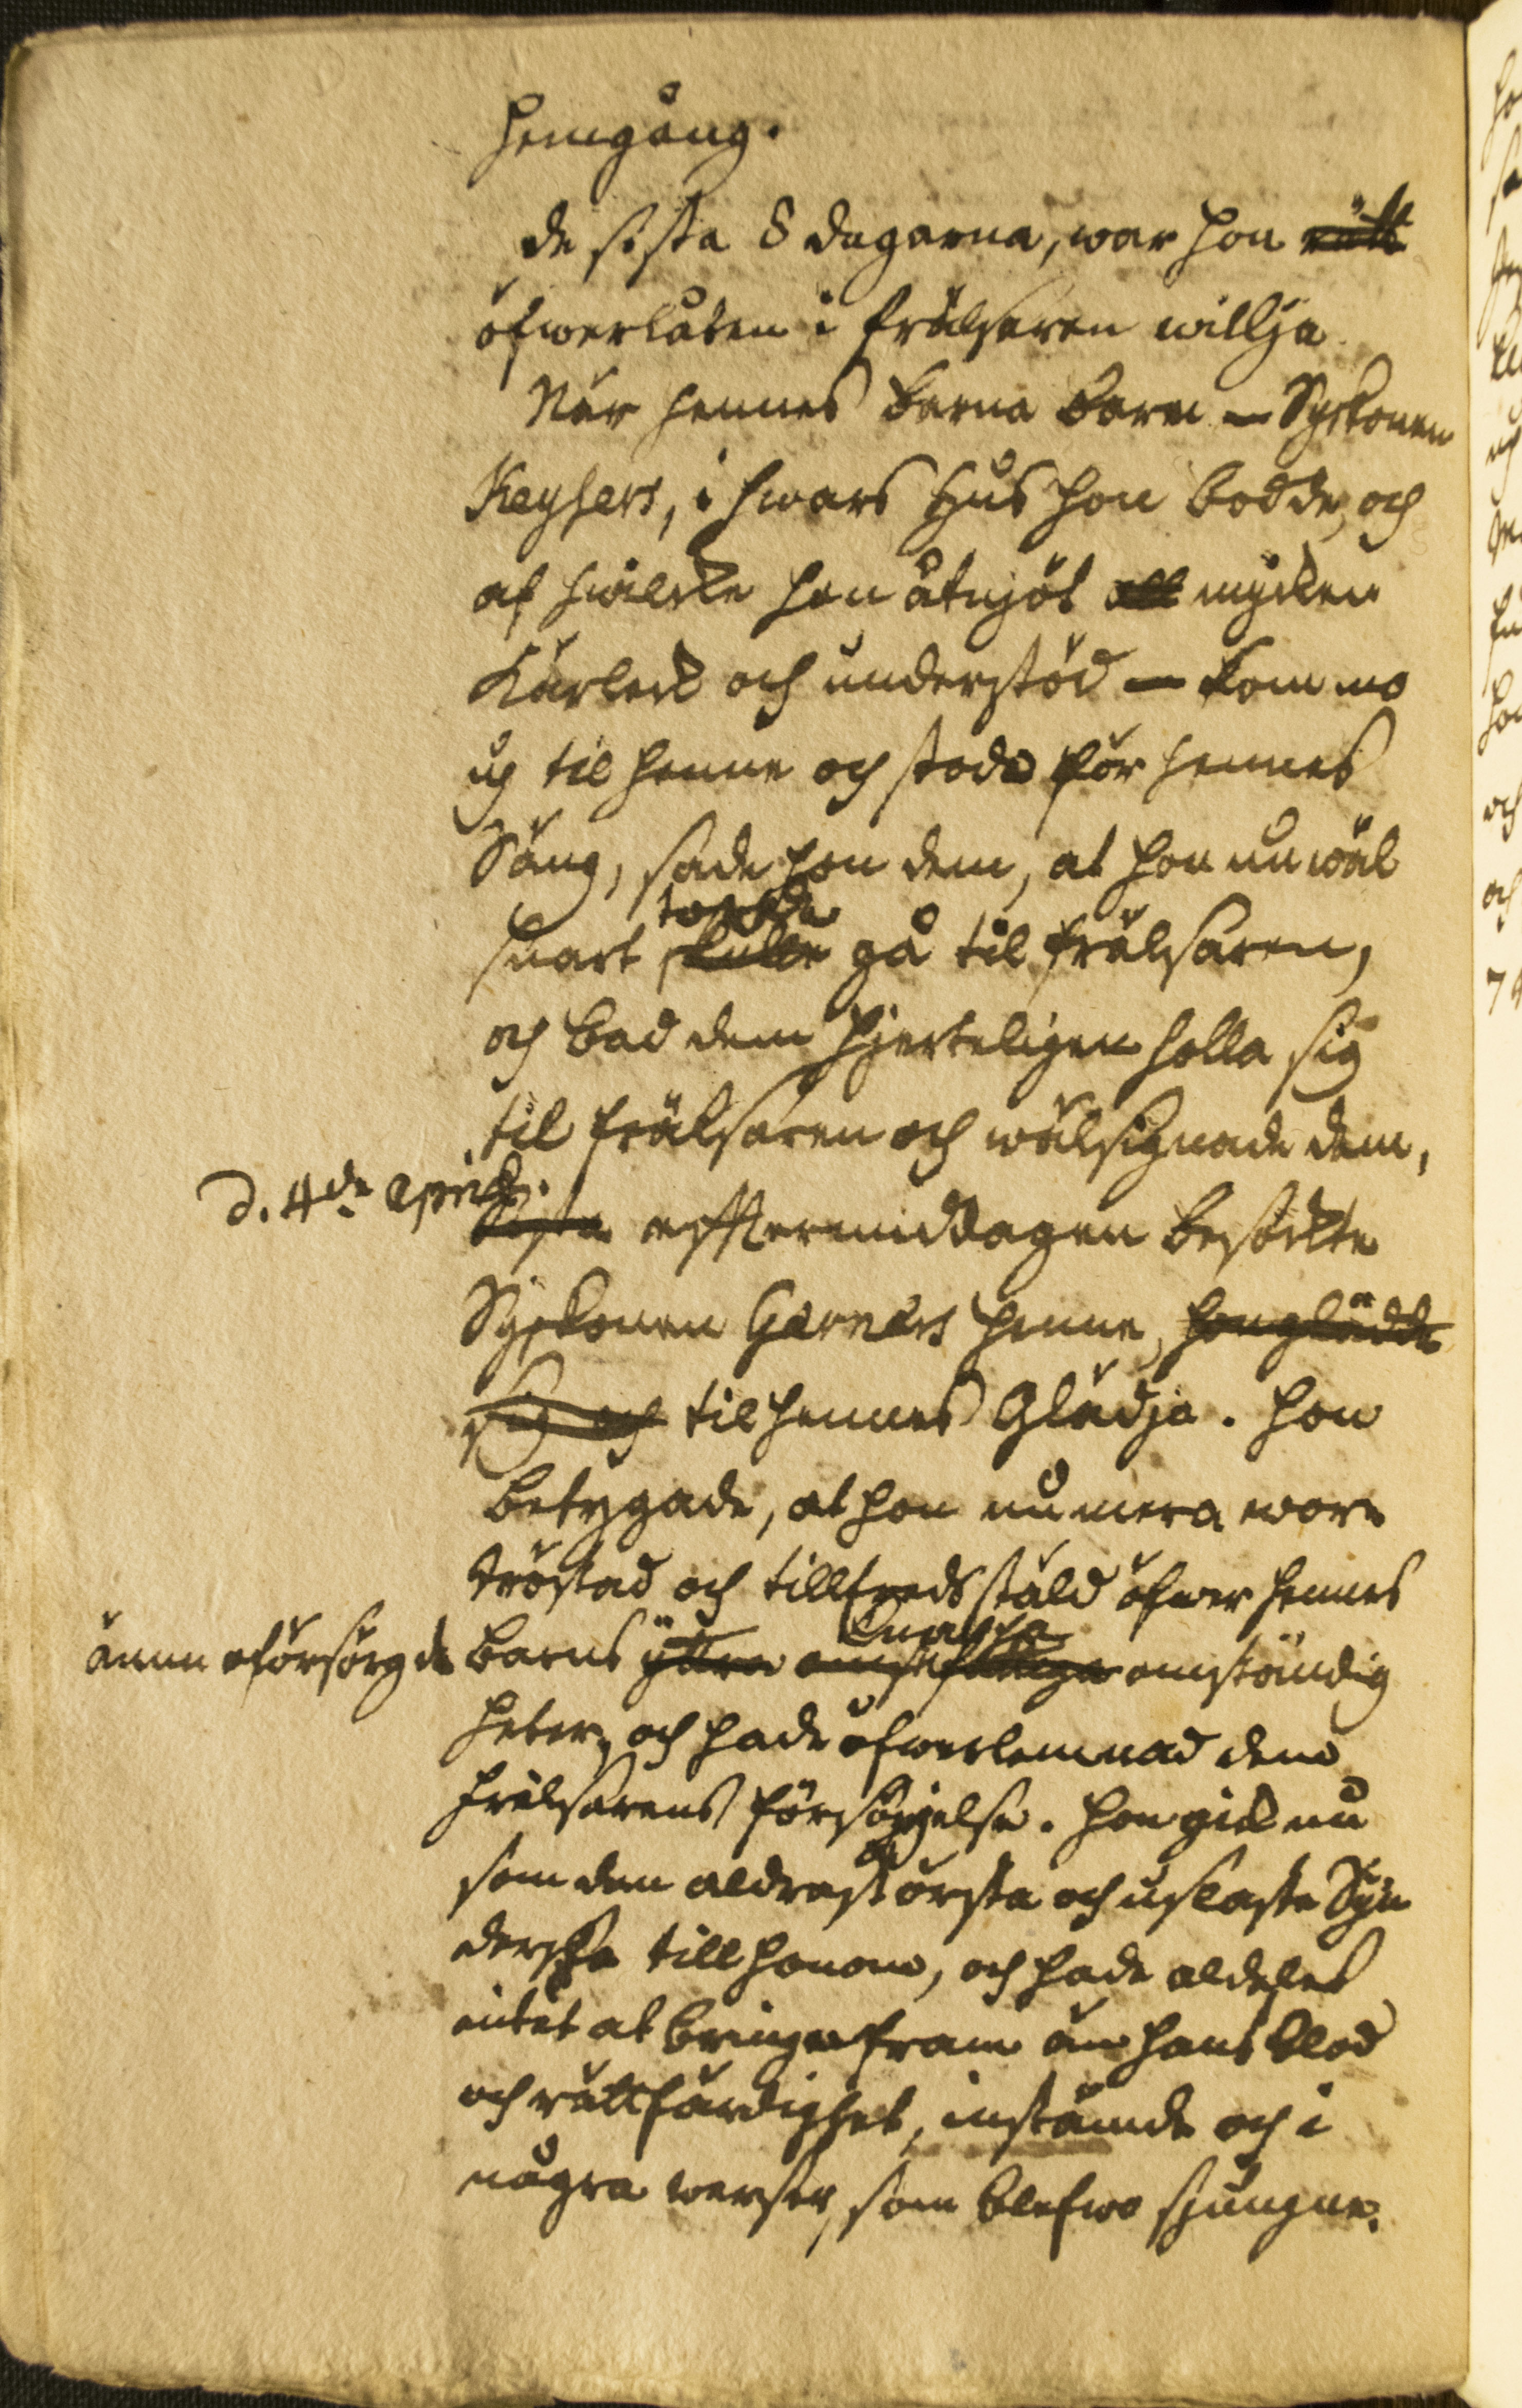 hemgång.
de sista 8 dagarna, war hon rätt
öfwerlåten i frälsaren willja
När hennes barna barn – Syskonen
Keysers, i hwars Hus hon bodde, och
af hwilcka hon åtnjöt all mycken
Kärleck och understöd – kommo
up til henne och stodo för hennes
Säng, sade hon dem, at hon nu wäl
torde
snart skulle gå til frälsaren,
och bad dem hjerteligen holla sig
til frälsaren och wälsignade dem,
d. 4de april.
Sista efftermiddagen besöckte
Syskonen Garners henne, hon glädde
sig och til hennes Glädja. hon
betygade, at hon nu mera wore
tröstad och tillfredsstäld öfwer hennes
knappa
ännu oförsörgde barns yttre omständig
heter, och hade öfwerlemnad dem
frälsarens försörjelse. hon gick nu
som den aldrastörsta och uslaste Syn
derska till honom, och hade aldeles
intet at bringa fram än hans blod
och rättfärdighet, instämde och i
några werser, som blefwo sjungne.